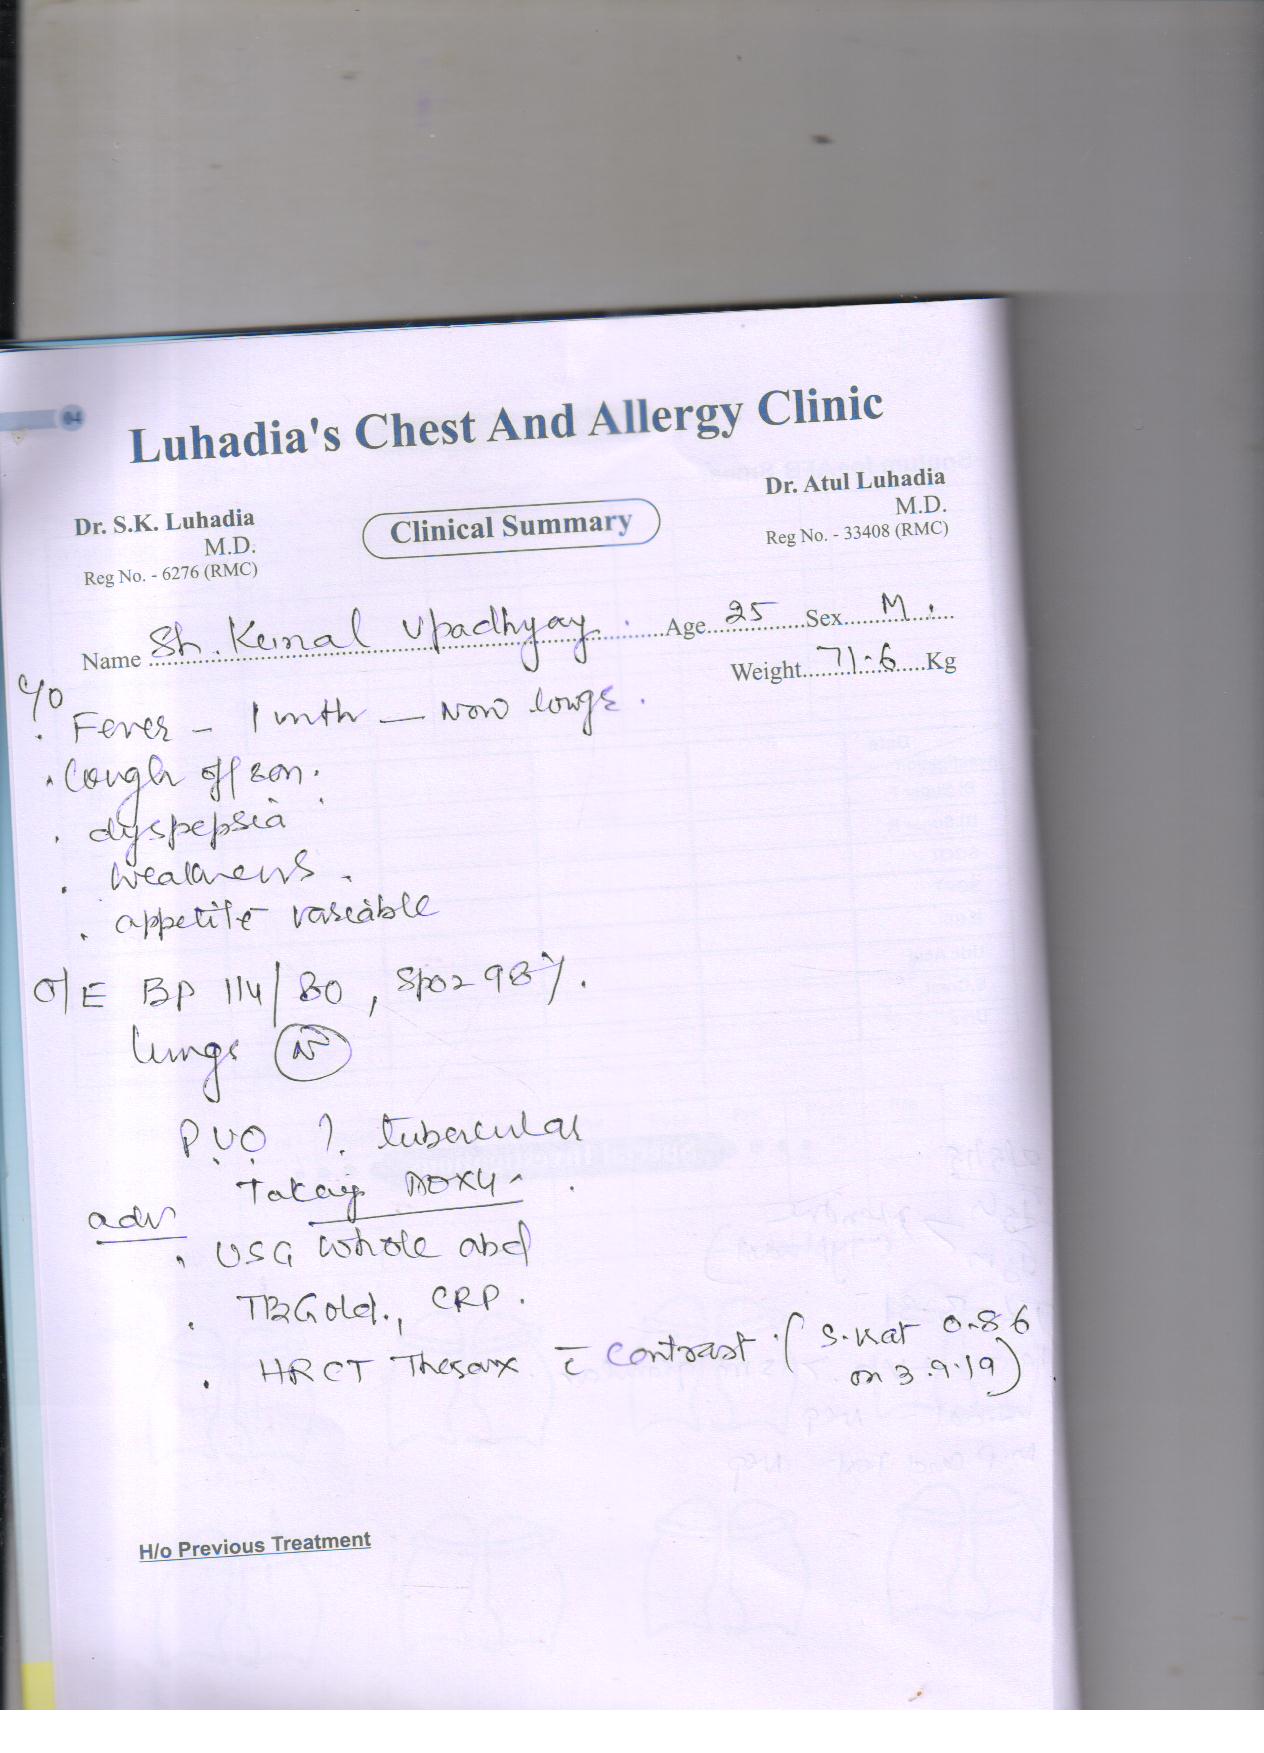 04
Luhadia's Chest And Allergy Clinic
Dr. S.K. Luhadia
M.D.
Reg No. - 6276 (RMC)
Clinical Summary
Dr. Atul Luhadia
M.D.
Reg No. - 33408 (RMC)
Name Sh. Kunal Upadhyay Age 25 Sex M.
Weight 71.6 Kg
c/o
. Fever - 1 mth - Now
. Cough off & on.
. dyspepsia
. Weakness.
. appetite variable
O/E BP 114/80, SpO2 98%.
Lungs N
PUO ?. tubercular
Taking DOXY
adv
. USG whole abd
. TBGold., CRP.
. HRCT Thorax c̄ contrast. (S. 0.86
on 3.9.19)
H/o Previous Treatment